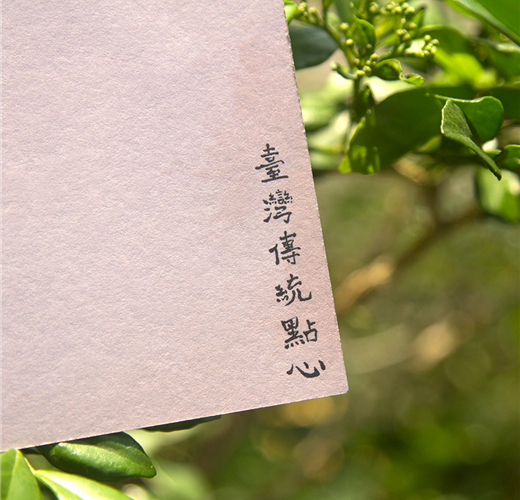 臺灣傳統點心